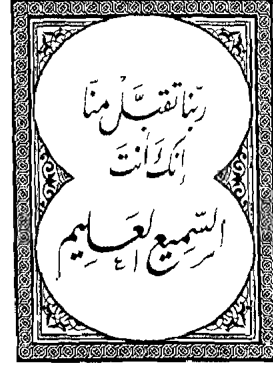 ربّنا تقبَّل منّا
إنك أنتَ
السّميع العليم